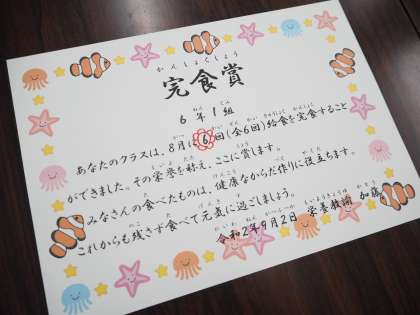 かんしょくしょう
完食賞
6年1組
あなたのクラスは、8月に6回(全6回)給食を完食すること
ができました。その栄誉を称え、ここに賞します。
みなさんの食べたものは、健康なからだ作りに役立ちます。
これからも残さず食べて元気に過ごしましょう。
令和2年9月2日 栄養教諭 加藤